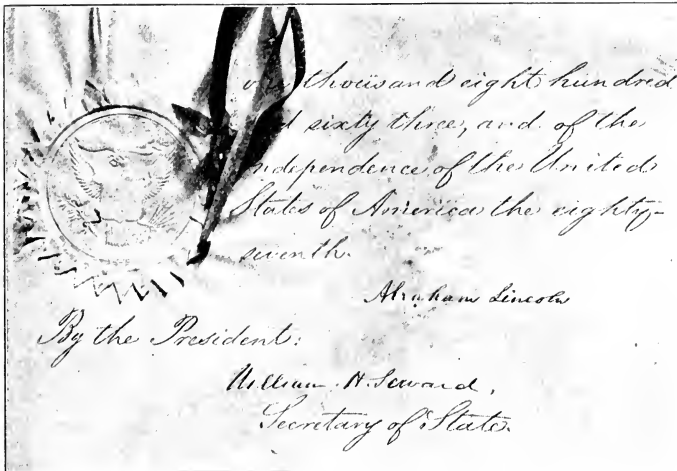 one thousand eight hundred
sixty three, and of the
ndependence of the United
States of America the eighty-
seventh.
Abraham Lincoln
By the President:
William H. Seward,
Secretary of State.